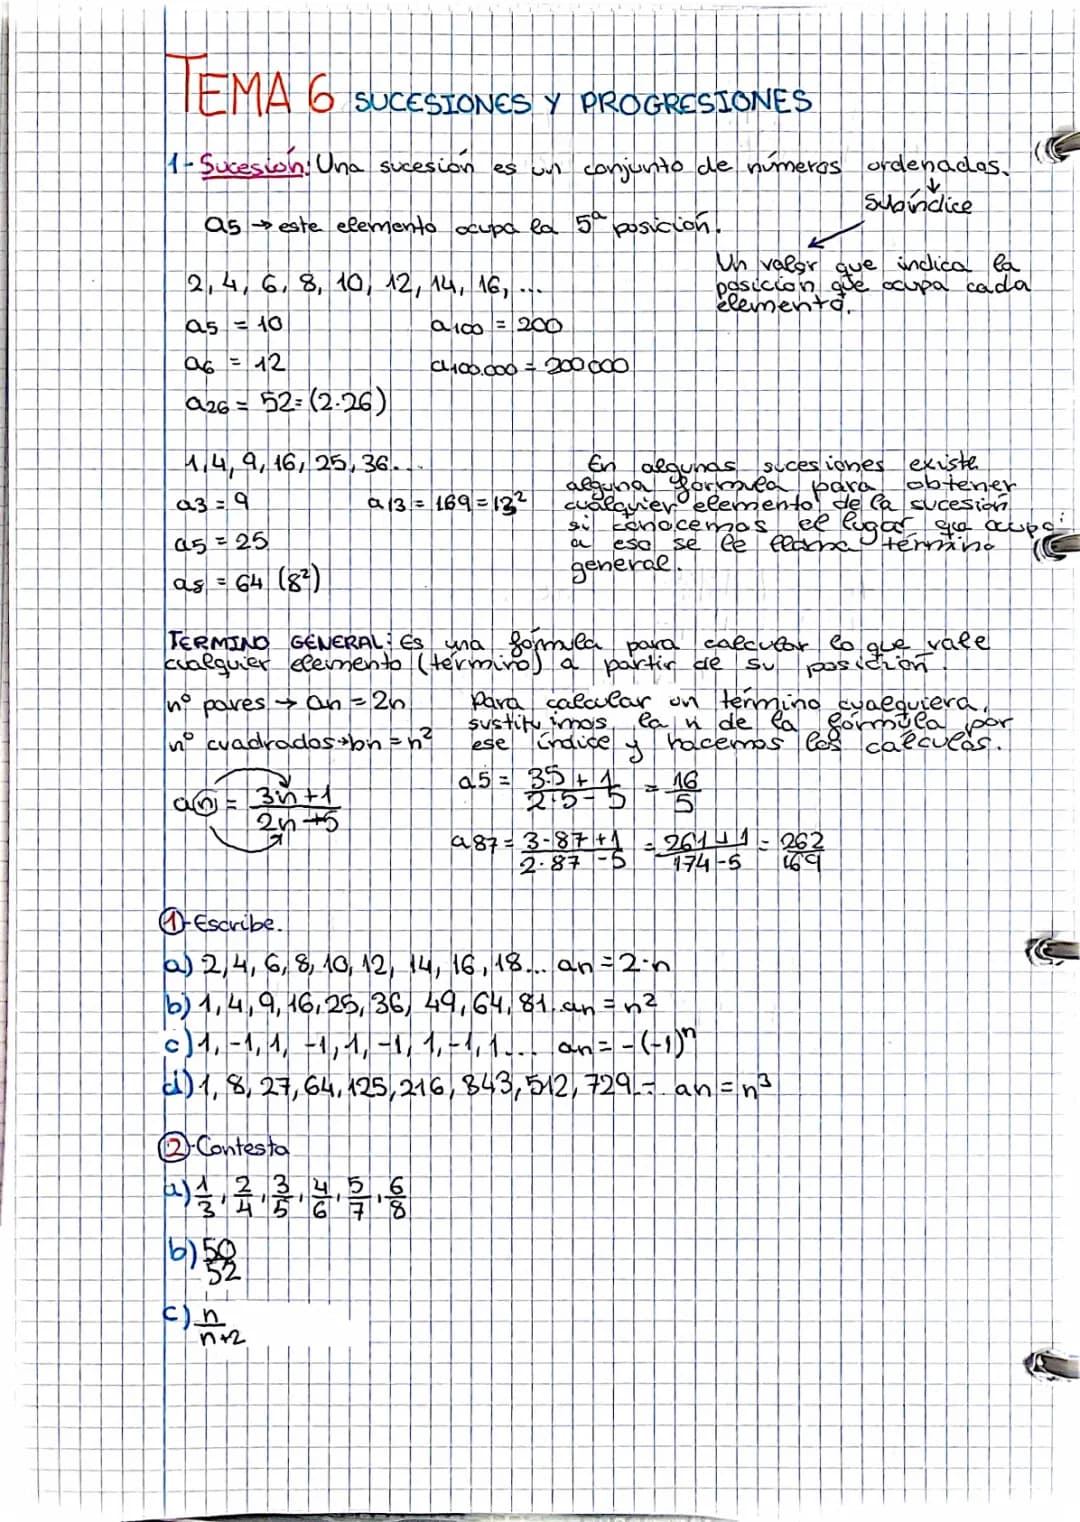 TEMA 6 SUCESIONES Y PROGRESIONES
1- Sucesión: Una sucesión es un conjunto de números ordenados.
subíndice
a5 → este elemento ocupa la 5ª posición.
Un valor que indica la
posición que ocupa cada
elemento.
2, 4, 6, 8, 10, 12, 14, 16, ...
a5 = 10
a100 = 200
a6 = 12
a100.000 = 200000
a26 = 52 = (2·26)
1, 4, 9, 16, 25, 36...
a3 = 9
a13 = 169 = 13²
a5 = 25
a8 = 64 (8²)
En algunas sucesiones existe
alguna formula para obtener
cualquier elemento de la sucesión
si conocemos el lugar que ocupa:
a eso se le llama término
general.
TERMINO GENERAL: Es una fórmula para calcular lo que vale
cualquier elemento (término) a partir de su posición.
nº pares → an = 2n
nº cuadrados → bn = n²
Para calcular un término cualquiera,
sustituimos la n de la fórmula por
ese índice y hacemos los cálculos.
an = 3n+1 / 2n+5
a5 = 3·5 + 1 / 2·5 - 5 = 16/5
a87 = 3·87 + 1 / 2·87 - 5 = 261+1 / 174-5 = 262/169
1- Escribe.
a) 2, 4, 6, 8, 10, 12, 14, 16, 18... an = 2·n
b) 1, 4, 9, 16, 25, 36, 49, 64, 81. an = n²
c) 1, -1, 1, -1, 1, -1, 1, -1, 1... an = -(-1)ⁿ
d) 1, 8, 27, 64, 125, 216, 343, 512, 729... an = n³
2- Contesta
a) 1/3, 2/4, 3/5, 4/6, 5/7, 6/8
b) 50/52
c) n/n+2